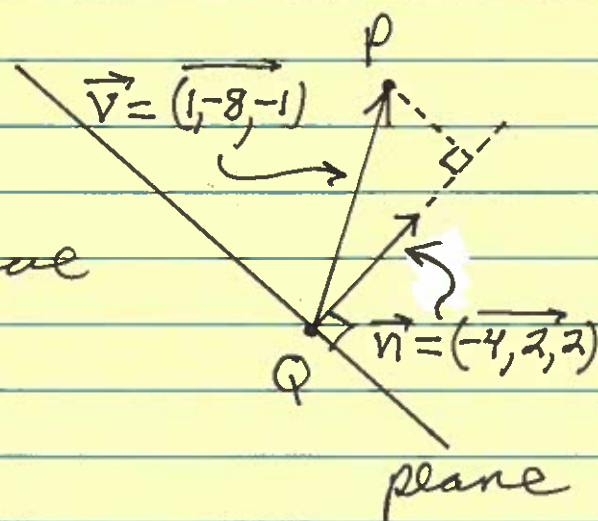 P
V = (1,-8,-1)
Q
n = (-4, 2, 2)
plane